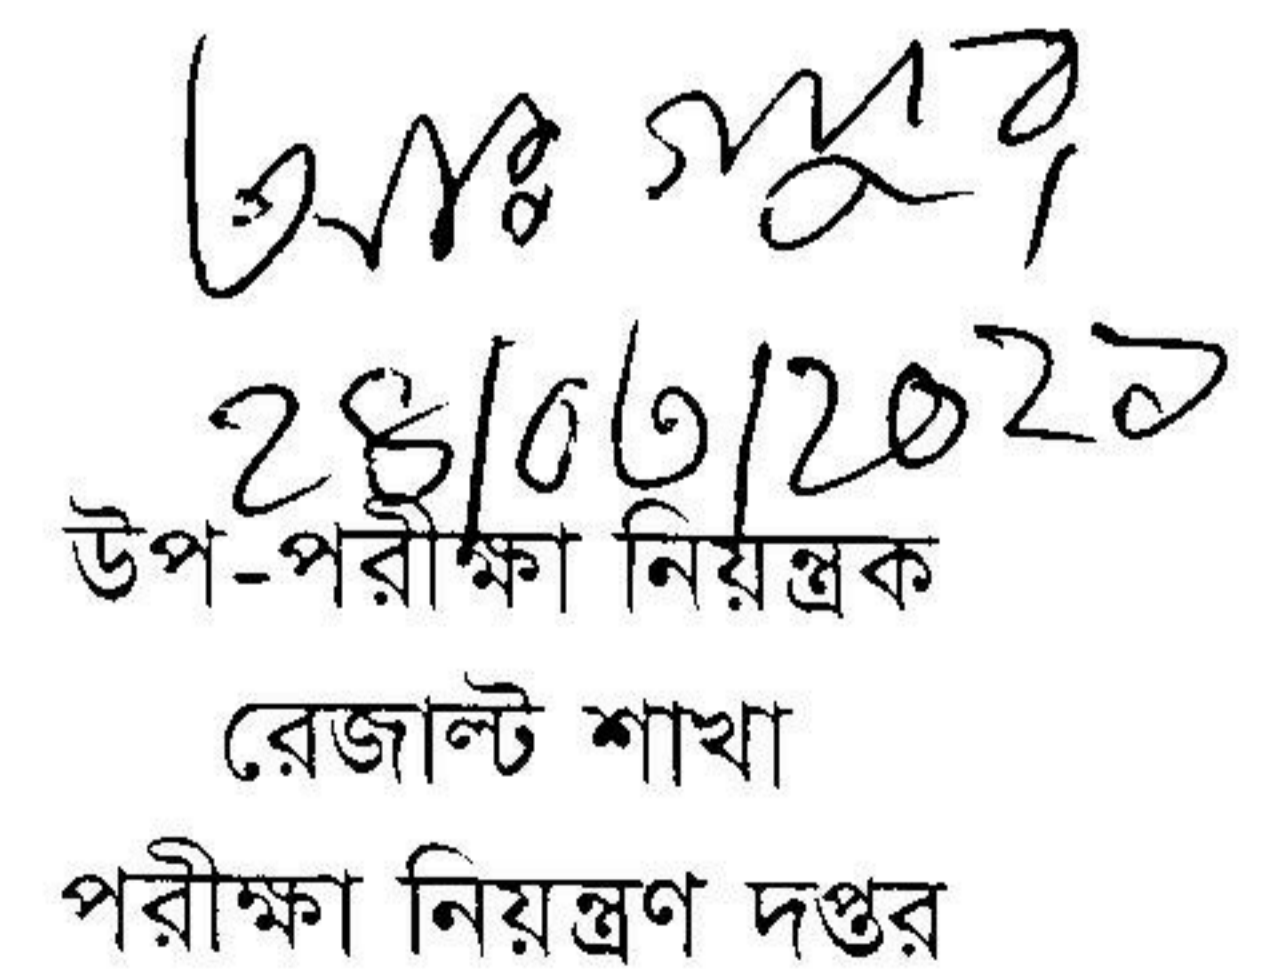 ২৪/০৩/২০২১
উপ-পরীক্ষা নিয়ন্ত্রক
রেজাল্ট শাখা
পরীক্ষা নিয়ন্ত্রণ দপ্তর